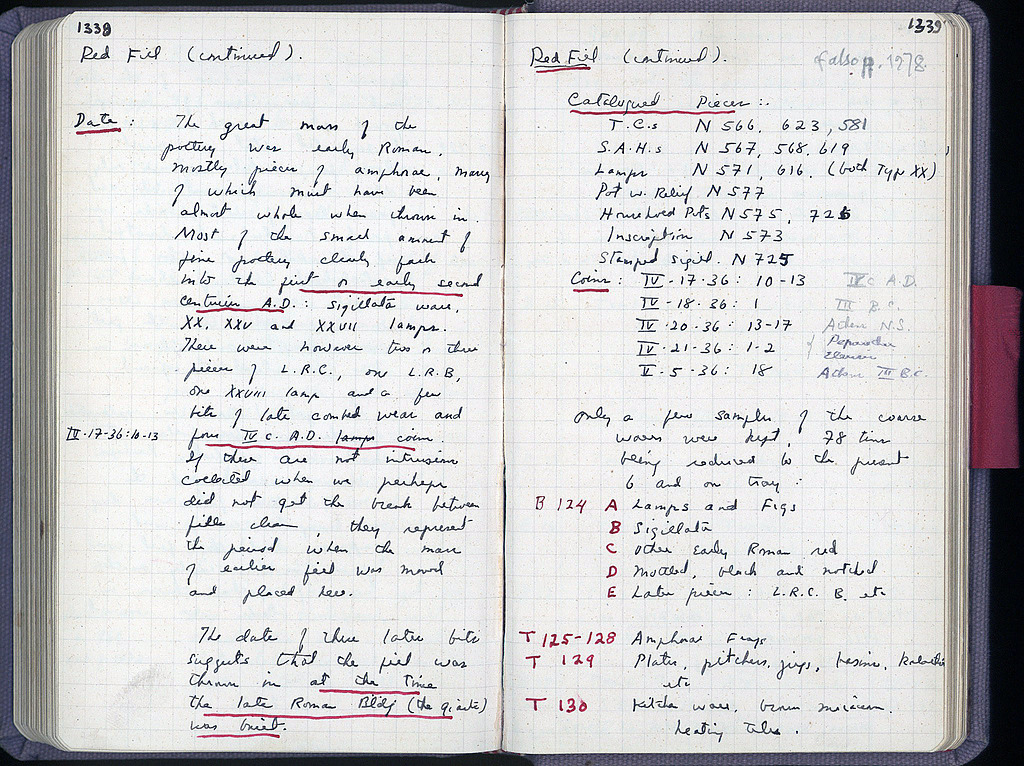 1338
Red Fill (continued).
Date: The great mass of the
pottery was early Roman,
mostly pieces of amphorae, many
of which must have been
almost whole when thrown in.
Most of the small amount of
fine pottery clearly falls
into the first or early second
centuries A.D.: sigillata ware,
XX, XXV and XXVII lamps.
There were however two or three
pieces of L.R.C., one L.R.B,
one XXVIII lamp and a few
bits of late combed wear and
IV·17-36:10-13 four IV c. A.D. lamps coins.
If these are not intrusions
collected when we perhaps
did not get the break between
fills clean, they represent
the period when the mass
of earlier fill was moved
and placed here.
The date of these later bits
suggests that the fill was
thrown in at the time
the late Roman Bldg (the giants)
was built.
1339
Red Fill (continued).
cf also p. 1278.
Catalogued Pieces:
T.C.s N 566, 623, 581
S.A.H.s N 567, 568, 619
Lamps N 571, 616. (both Type XX)
Pot w. Relief N 577
Household Pots N 575, 726
Inscription N 573
Stamped sigill. N 725
Coins: IV·17·36: 10-13 IV c A.D.
IV·18·36: 1 III B.C.
IV·20·36: 13-17 Athen N.S.
IV·21·36: 1-2
V·5·36: 18 Athen III B.C.
Only a few samples of the coarse
wares were kept, 78 tins
being reduced to the present
6 and one tray:
B 124 A Lamps and Figs
B Sigillata
C Other Early Roman red
D Mottled, black and notched
E Later pieces: L.R.C. B. etc
T 125-128 Amphorae Frags
T 129 Plates, pitchers, jugs, basins,
etc
T 130 Kitchen ware, brown micaceous.
Heating tubes.